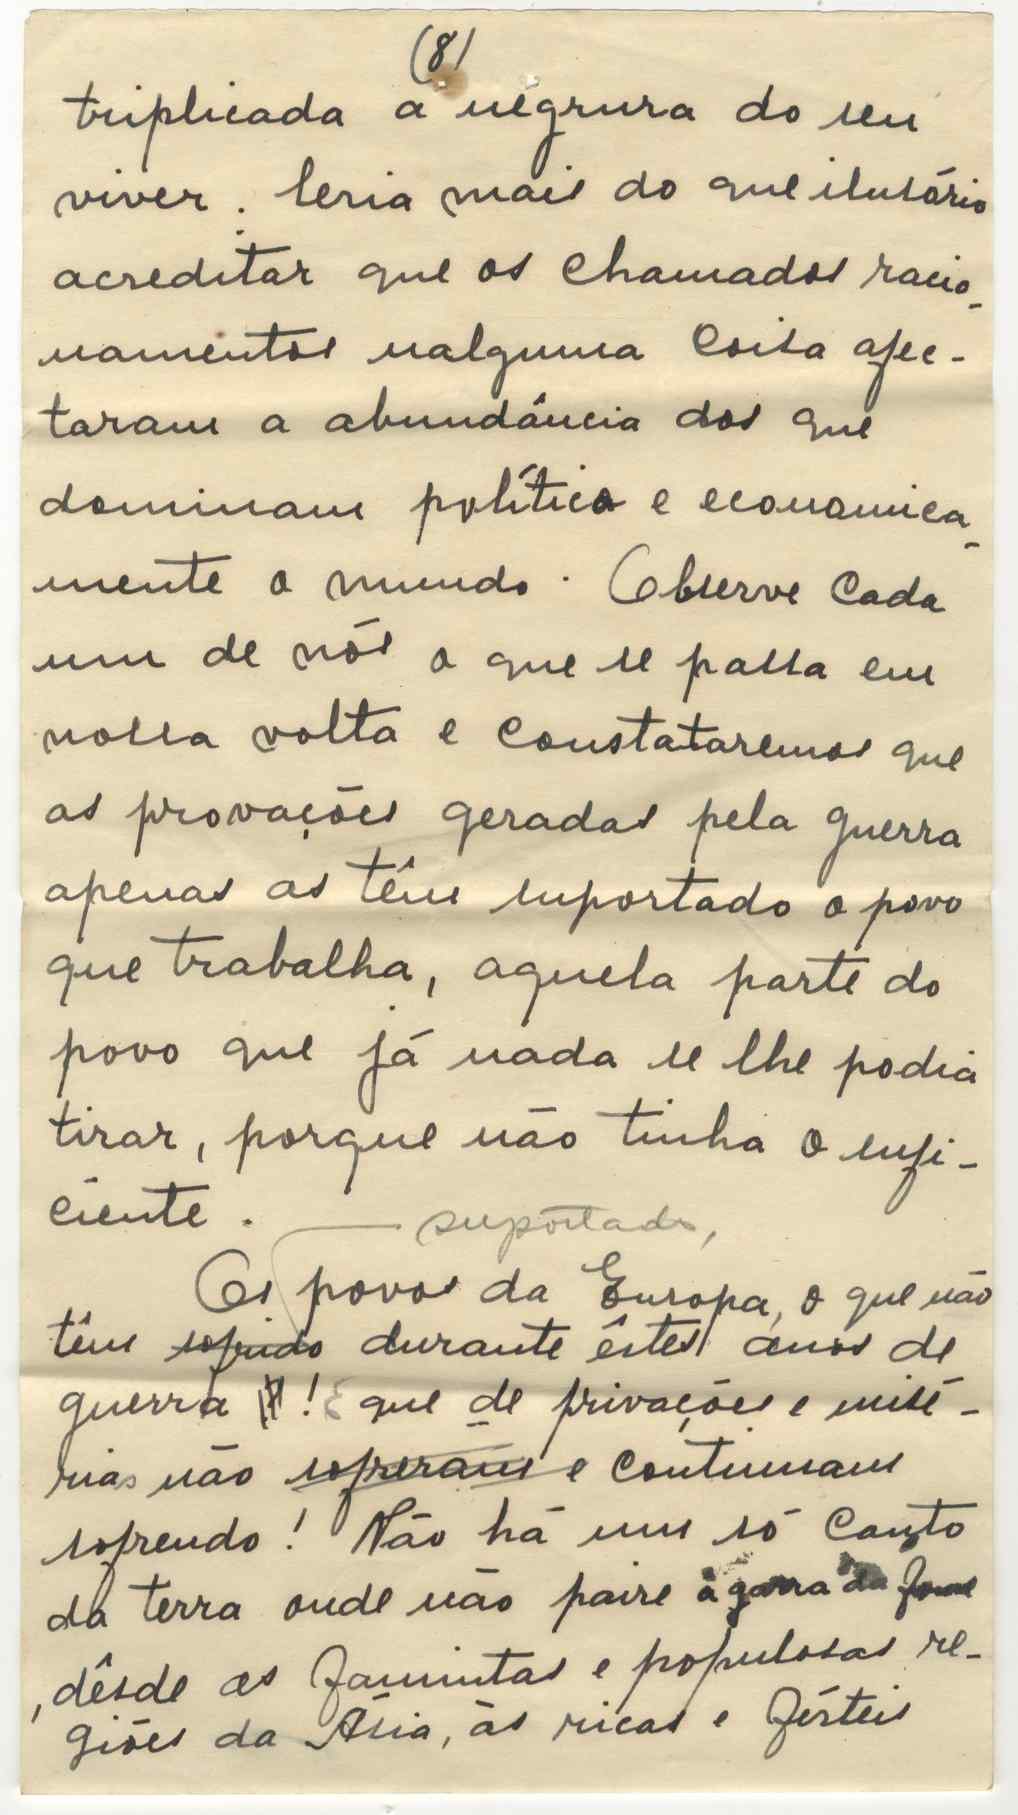 (8)
triplicada a negrura do seu
viver. Seria mais do que ilusório
acreditar que os chamados racio-
namentos nalguma coisa afec-
taram a abundância dos que
dominam política e economica-
mente o mundo. Observe cada
um de nós o que se passa em
nossa volta e constataremos que
as provações geradas pela guerra
apenas as têm suportado o povo
que trabalha, aquela parte do
povo que já nada se lhe podia
tirar, porque não tinha o sufi-
ciente.
suportado,
Os povos da Europa, o que não
têm sofrido durante êstes anos de
guerra ! que de privações e misé-
rias não sofreram e continuam
sofrendo! Não há um só canto
da terra onde não paire a garra da fome
, dêsde as famintas e populosas re-
giões da Ásia, às ricas e férteis